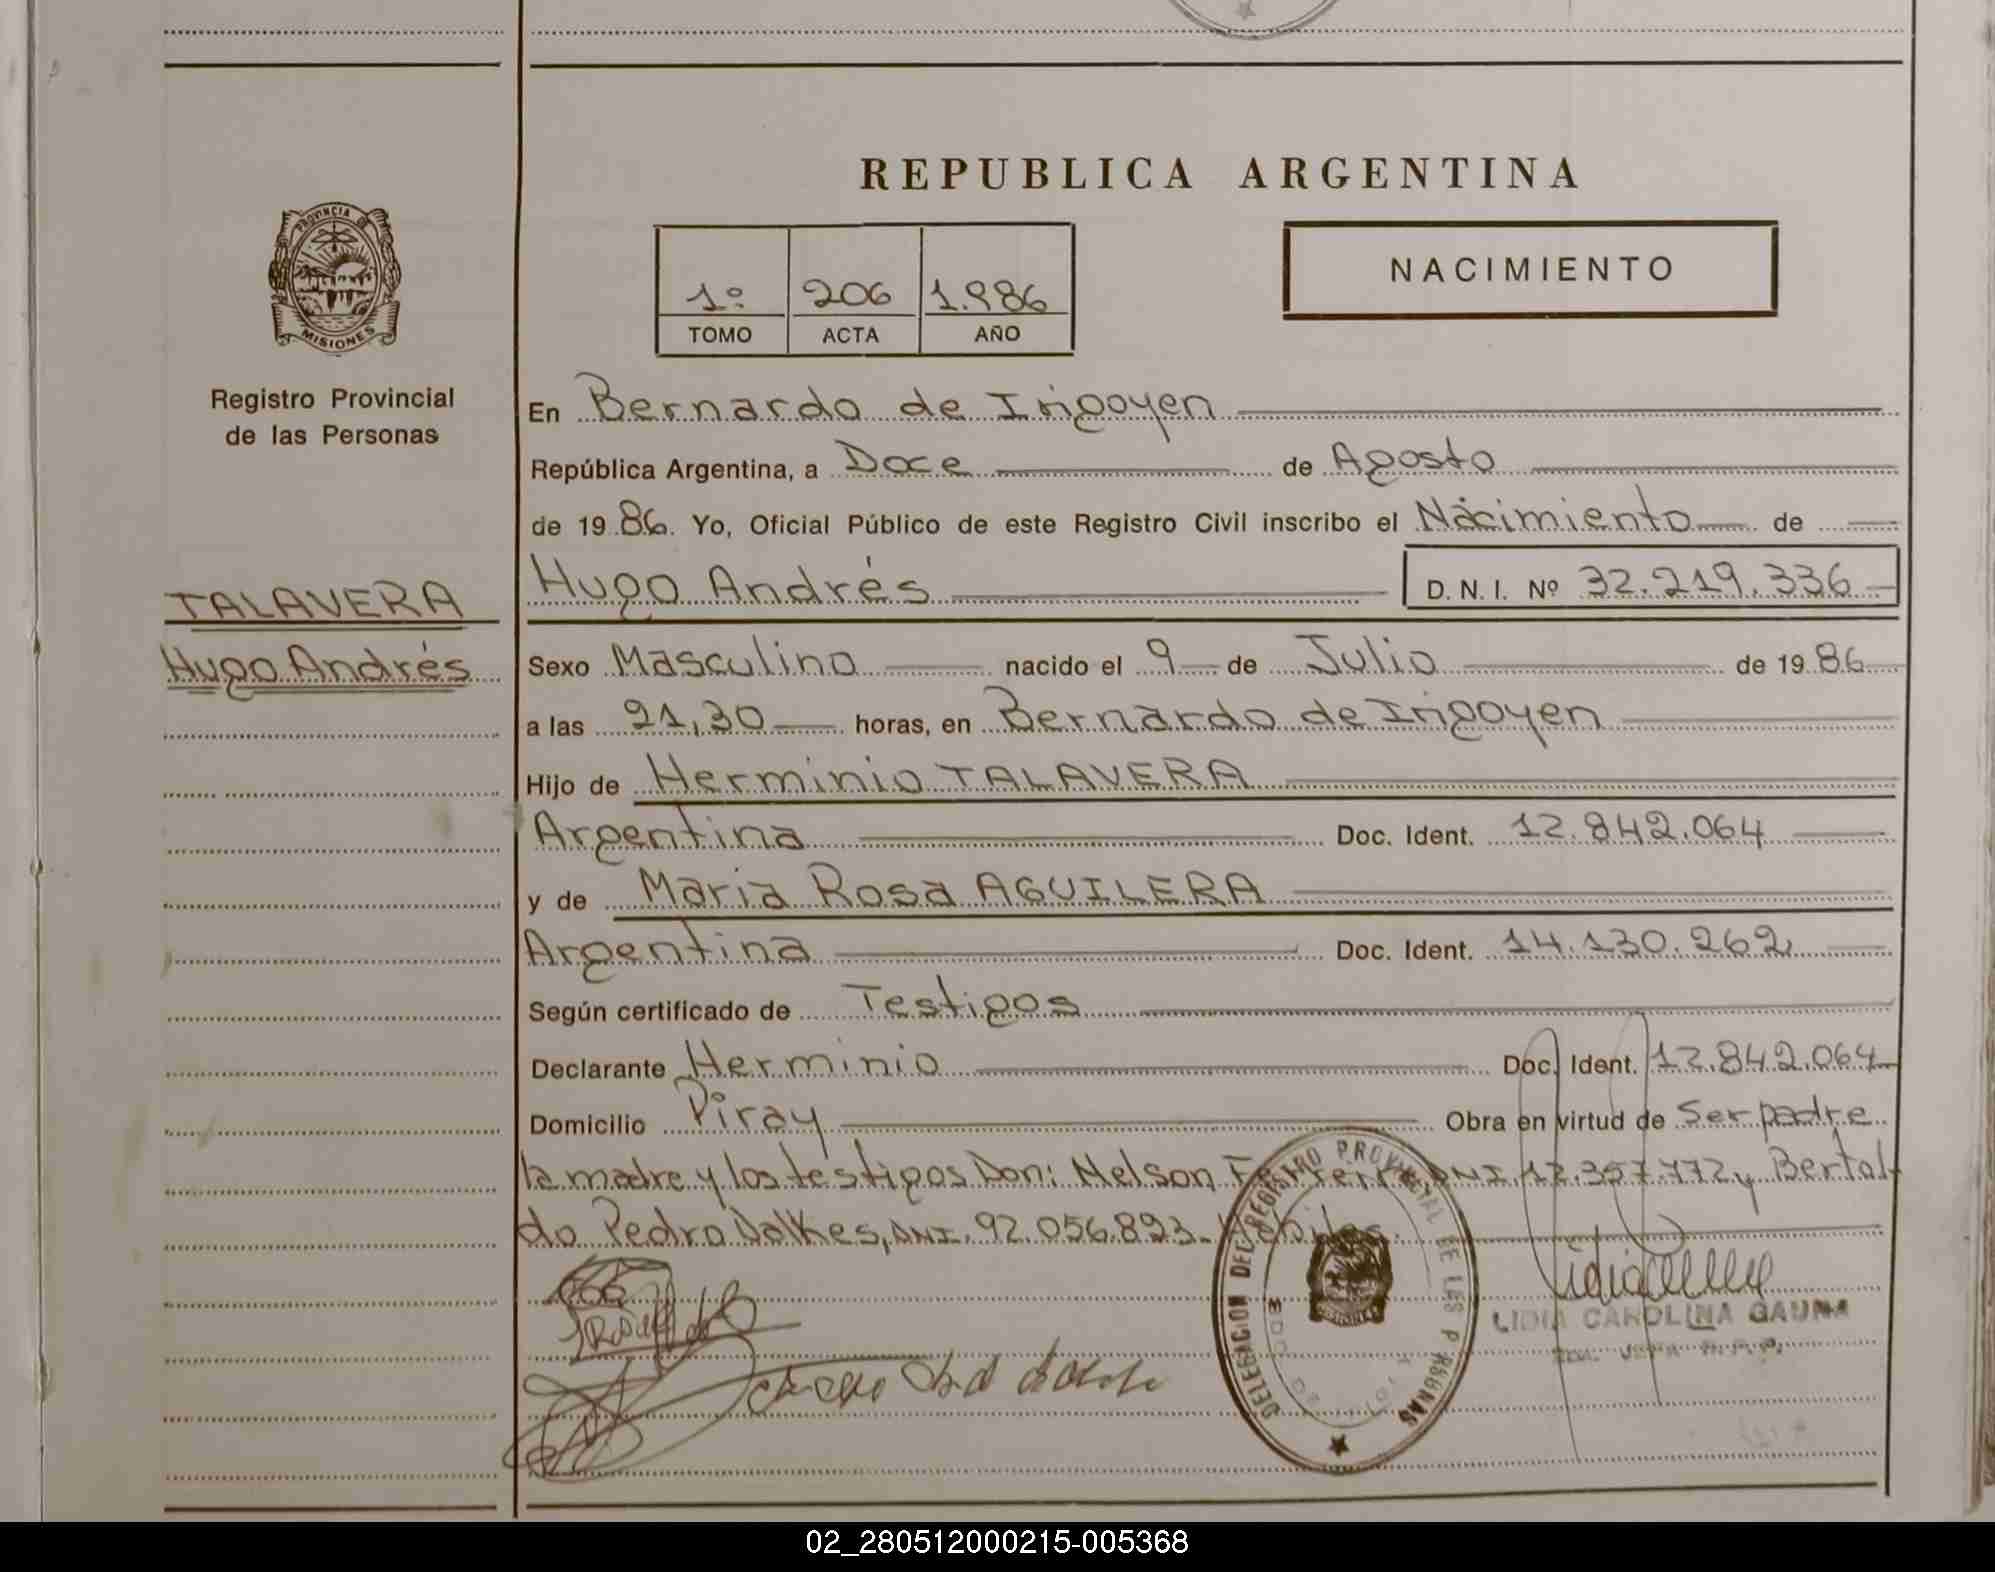 REPUBLICA ARGENTINA
PROVINCIA DE
MISIONES
Registro Provincial
de las Personas
1º 206 1.986
TOMO ACTA AÑO
NACIMIENTO
En Bernardo de Irigoyen
República Argentina, a Doce de Agosto
de 19 86. Yo, Oficial Público de este Registro Civil inscribo el Nacimiento de
Hugo Andrés D. N. I. Nº 32.219.336
TALAVERA
Hugo Andrés
Sexo Masculino nacido el 9 de Julio de 19 86
a las 21,30 horas, en Bernardo de Irigoyen
Hijo de Herminio TALAVERA
Argentina Doc. Ident. 12.842.064
y de Maria Rosa AGUILERA
Argentina Doc. Ident. 14.130.262
Según certificado de Testigos
Declarante Herminio Doc. Ident. 12.842.064
Domicilio Piray Obra en virtud de Ser padre
la madre y los testigos Don: Nelson DNI 12.357.772 y Bertol-
do Pedro Dalkes, DNI. 92.056.893. Hábiles.
DELEGACION DEL REGISTRO PROVINCIAL DE LAS PERSONAS
LIDIA CAROLINA GAUNA
02_280512000215-005368